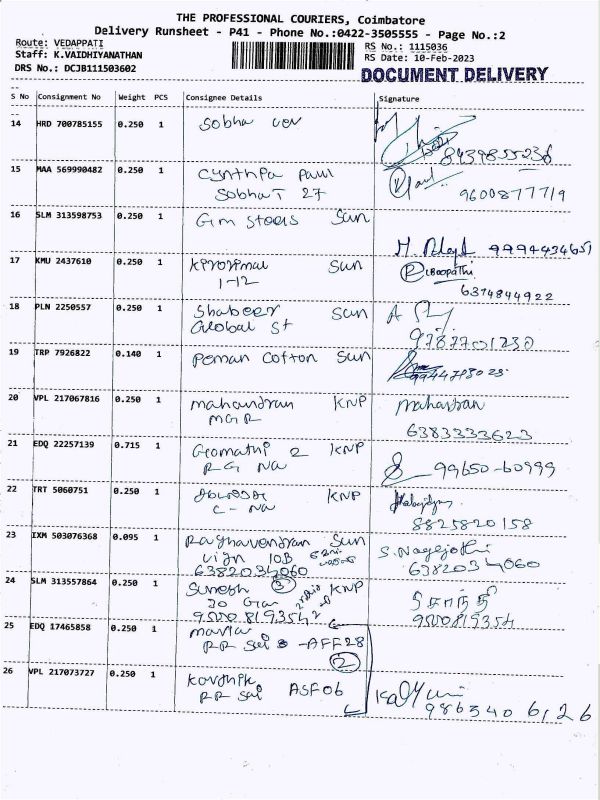 THE PROFESSIONAL COURIERS, Coimbatore
Delivery Runsheet - P41 - Phone No.:0422-3505555 - Page No.:2
Route: VEDAPPATI
RS No.: 1115036
Staff: K.VAIDHIYANATHAN
RS Date: 10-Feb-2023
DRS No.: DCJB111503602
DOCUMENT DELIVERY
S No Consignment No Weight PCS Consignee Details Signature
14 HRD 700785155 0.250 1 Sobha
15 MAA 569990482 0.250 1 Cynthia Paul
Sobha T 27 9600877719
16 SLM 313598753 0.250 1 Gim Steels Sun
9994434651
17 KMU 2437610 0.250 1 Sun Boopathi
1-12 6374844922
18 PLN 2250557 0.250 1 Shabeer Sun
Global St 9787701230
19 TRP 7926822 0.140 1 Peman Cotton Sun
20 VPL 217067816 0.250 1 mahandran KNP
MGR 6383333623
21 EDQ 22257139 0.715 1 Gomathi 2 KNP
RG Na 99650-60999
22 TRT 5060751 0.250 1 KNP
C-Na 8825820158
23 IXM 503076368 0.095 1 Raghavendran Sun
Vign IOB S. Nagajothi
6382034060 6382034060
24 SLM 313557864 0.250 1 Suresh 3 KNP
9500819354 9500819354
25 EDQ 17465858 0.250 1
RR Sai - AFF28
2
26 VPL 217073727 0.250 1
RR Sai ASF06
9865406126